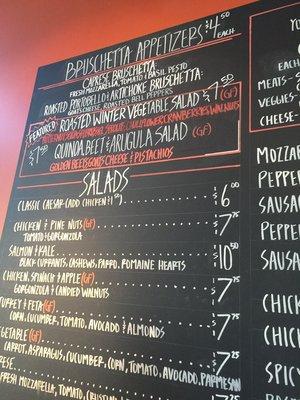 BRUSCHETTA APPETIZERS $4.50 EACH
CAPRESE BRUSCHETTA:
FRESH MOZZARELLA, TOMATO & BASIL PESTO
ROASTED PORTOBELLO & ARTICHOKE BRUSCHETTA:
GOATS CHEESE, ROASTED BELL PEPPERS
FEATURED ROASTED WINTER VEGETABLE SALAD $7.50 (GF)
CAULIFLOWER CRANBERRIES WALNUTS
$7 QUINOA, BEET & ARUGULA SALAD (GF)
GOLDEN BEETS GOATS CHEESE & PISTACHIOS
SALADS
CLASSIC CAESAR (ADD CHICKEN $1) $6.00
CHICKEN & PINE NUTS (GF) $7.75
TOMATO & GORGONZOLA
SALMON & KALE $10.50
BLACK CURRANTS, CASHEWS, FARRO, ROMAINE HEARTS
CHICKEN, SPINACH & APPLE (GF) $7.75
GORGONZOLA & CANDIED WALNUTS
TURKEY & FETA (GF) $7.75
CORN, CUCUMBER, TOMATO, AVOCADO & ALMONDS
VEGETABLE (GF) $7.25
CARROT, ASPARAGUS, CUCUMBER, CORN, TOMATO, AVOCADO, PARMESAN
FRESH MOZZARELLA, TOMATO, $7.25
EACH
MEATS-
VEGGIES-
CHEESE-
MOZZA
PEPPER
SAUSA
PEPPER
SAUSA
CHICK
CHICK
SPICY
CHICK